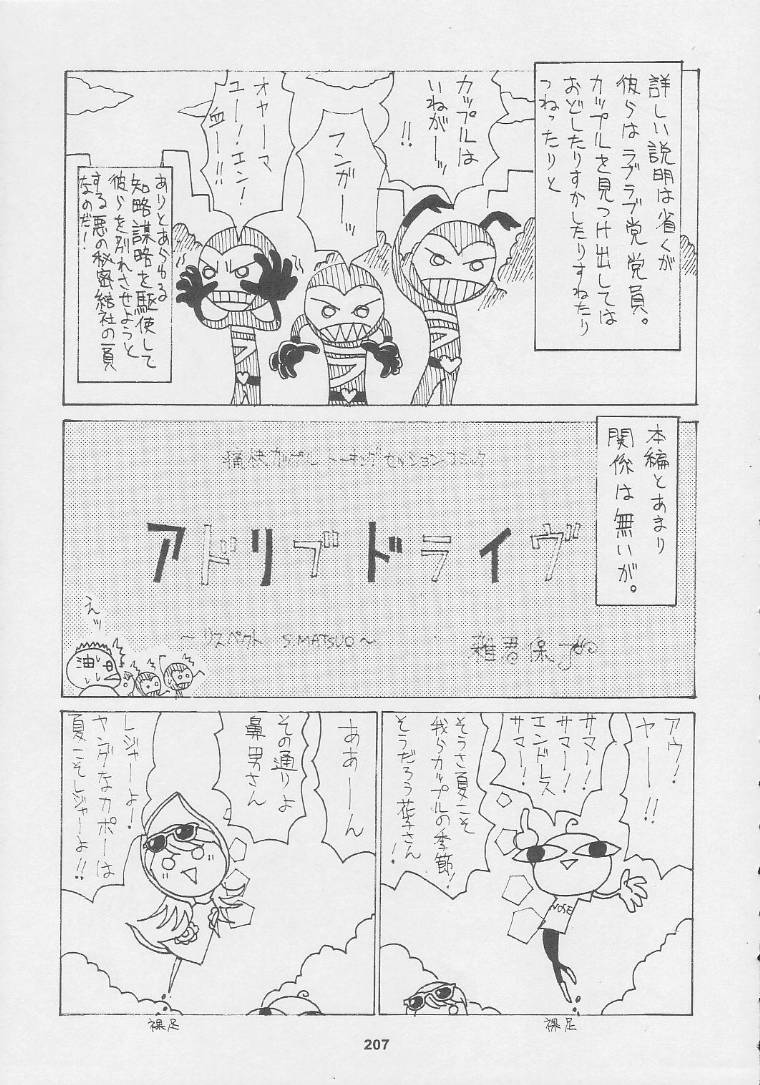 詳しい説明は省くが
彼らはラブラブ党党員。
カップルを見つけ出しては
おどしたりすかしたりすねたり
つねったりと
カップルは
いねがーッ
!!
フンガーッ
オヤーマ
ユー！エン！
ー!!
ありとあらゆる
知略謀略を駆使して
彼らを別れさせようと
する悪の秘密結社の員
なのだ！
ラブ
ラブ
ラブ
本編とあまり
関係は無いが。
痛快カップルトーキングセッションコミック
アドリブドライヴ
～リスペクト S.MATSUO～
えッ
油
アウ！
ヤーー!!
サマー！
サマー！
エンドレス
サマー！
そうさ夏こそ
我らカップルの季節！
そうだろう花子さん！
NOSE
裸足
ああーん
その通りよ
鼻男さん
レジャーよー！
ヤングなカポーは
夏こそレジャーよ!!
裸足
207